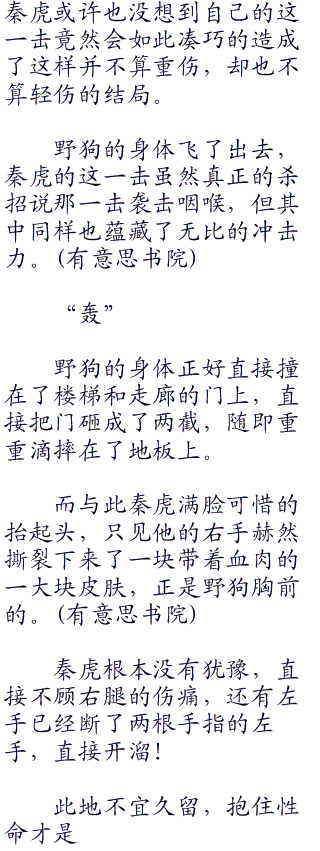 秦虎或许也没想到自己的这
一击竟然会如此凑巧的造成
了这样并不算重伤，却也不
算轻伤的结局。
野狗的身体飞了出去，
秦虎的这一击虽然真正的杀
招说那一击袭击咽喉，但其
中同样也蕴藏了无比的冲击
力。(有意思书院)
“轰”
野狗的身体正好直接撞
在了楼梯和走廊的门上，直
接把门砸成了两截，随即重
重滴摔在了地板上。
而与此秦虎满脸可惜的
抬起头，只见他的右手赫然
撕裂下来了一块带着血肉的
一大块皮肤，正是野狗胸前
的。(有意思书院)
秦虎根本没有犹豫，直
接不顾右腿的伤痛，还有左
手已经断了两根手指的左
手，直接开溜！
此地不宜久留，抱住性
命才是